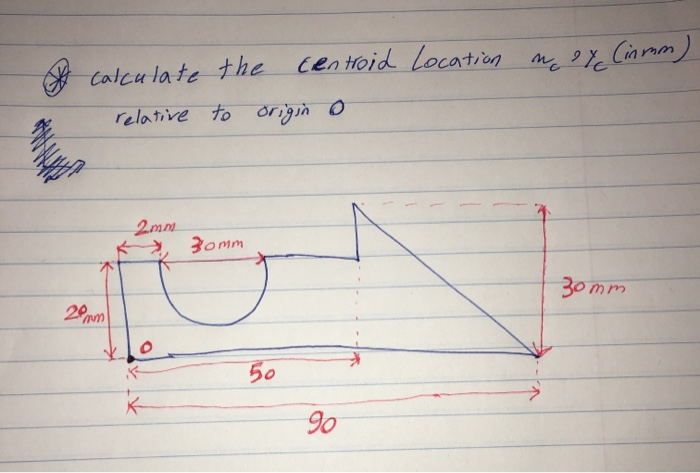 calculate the centroid location xc, yc (in mm)
relative to origin O
2mm
30mm
20mm
30mm
O
50
90